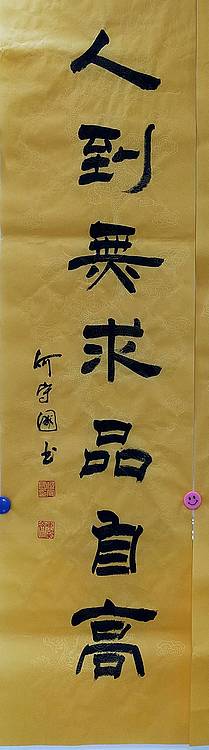 人到無求品自高
何守國书